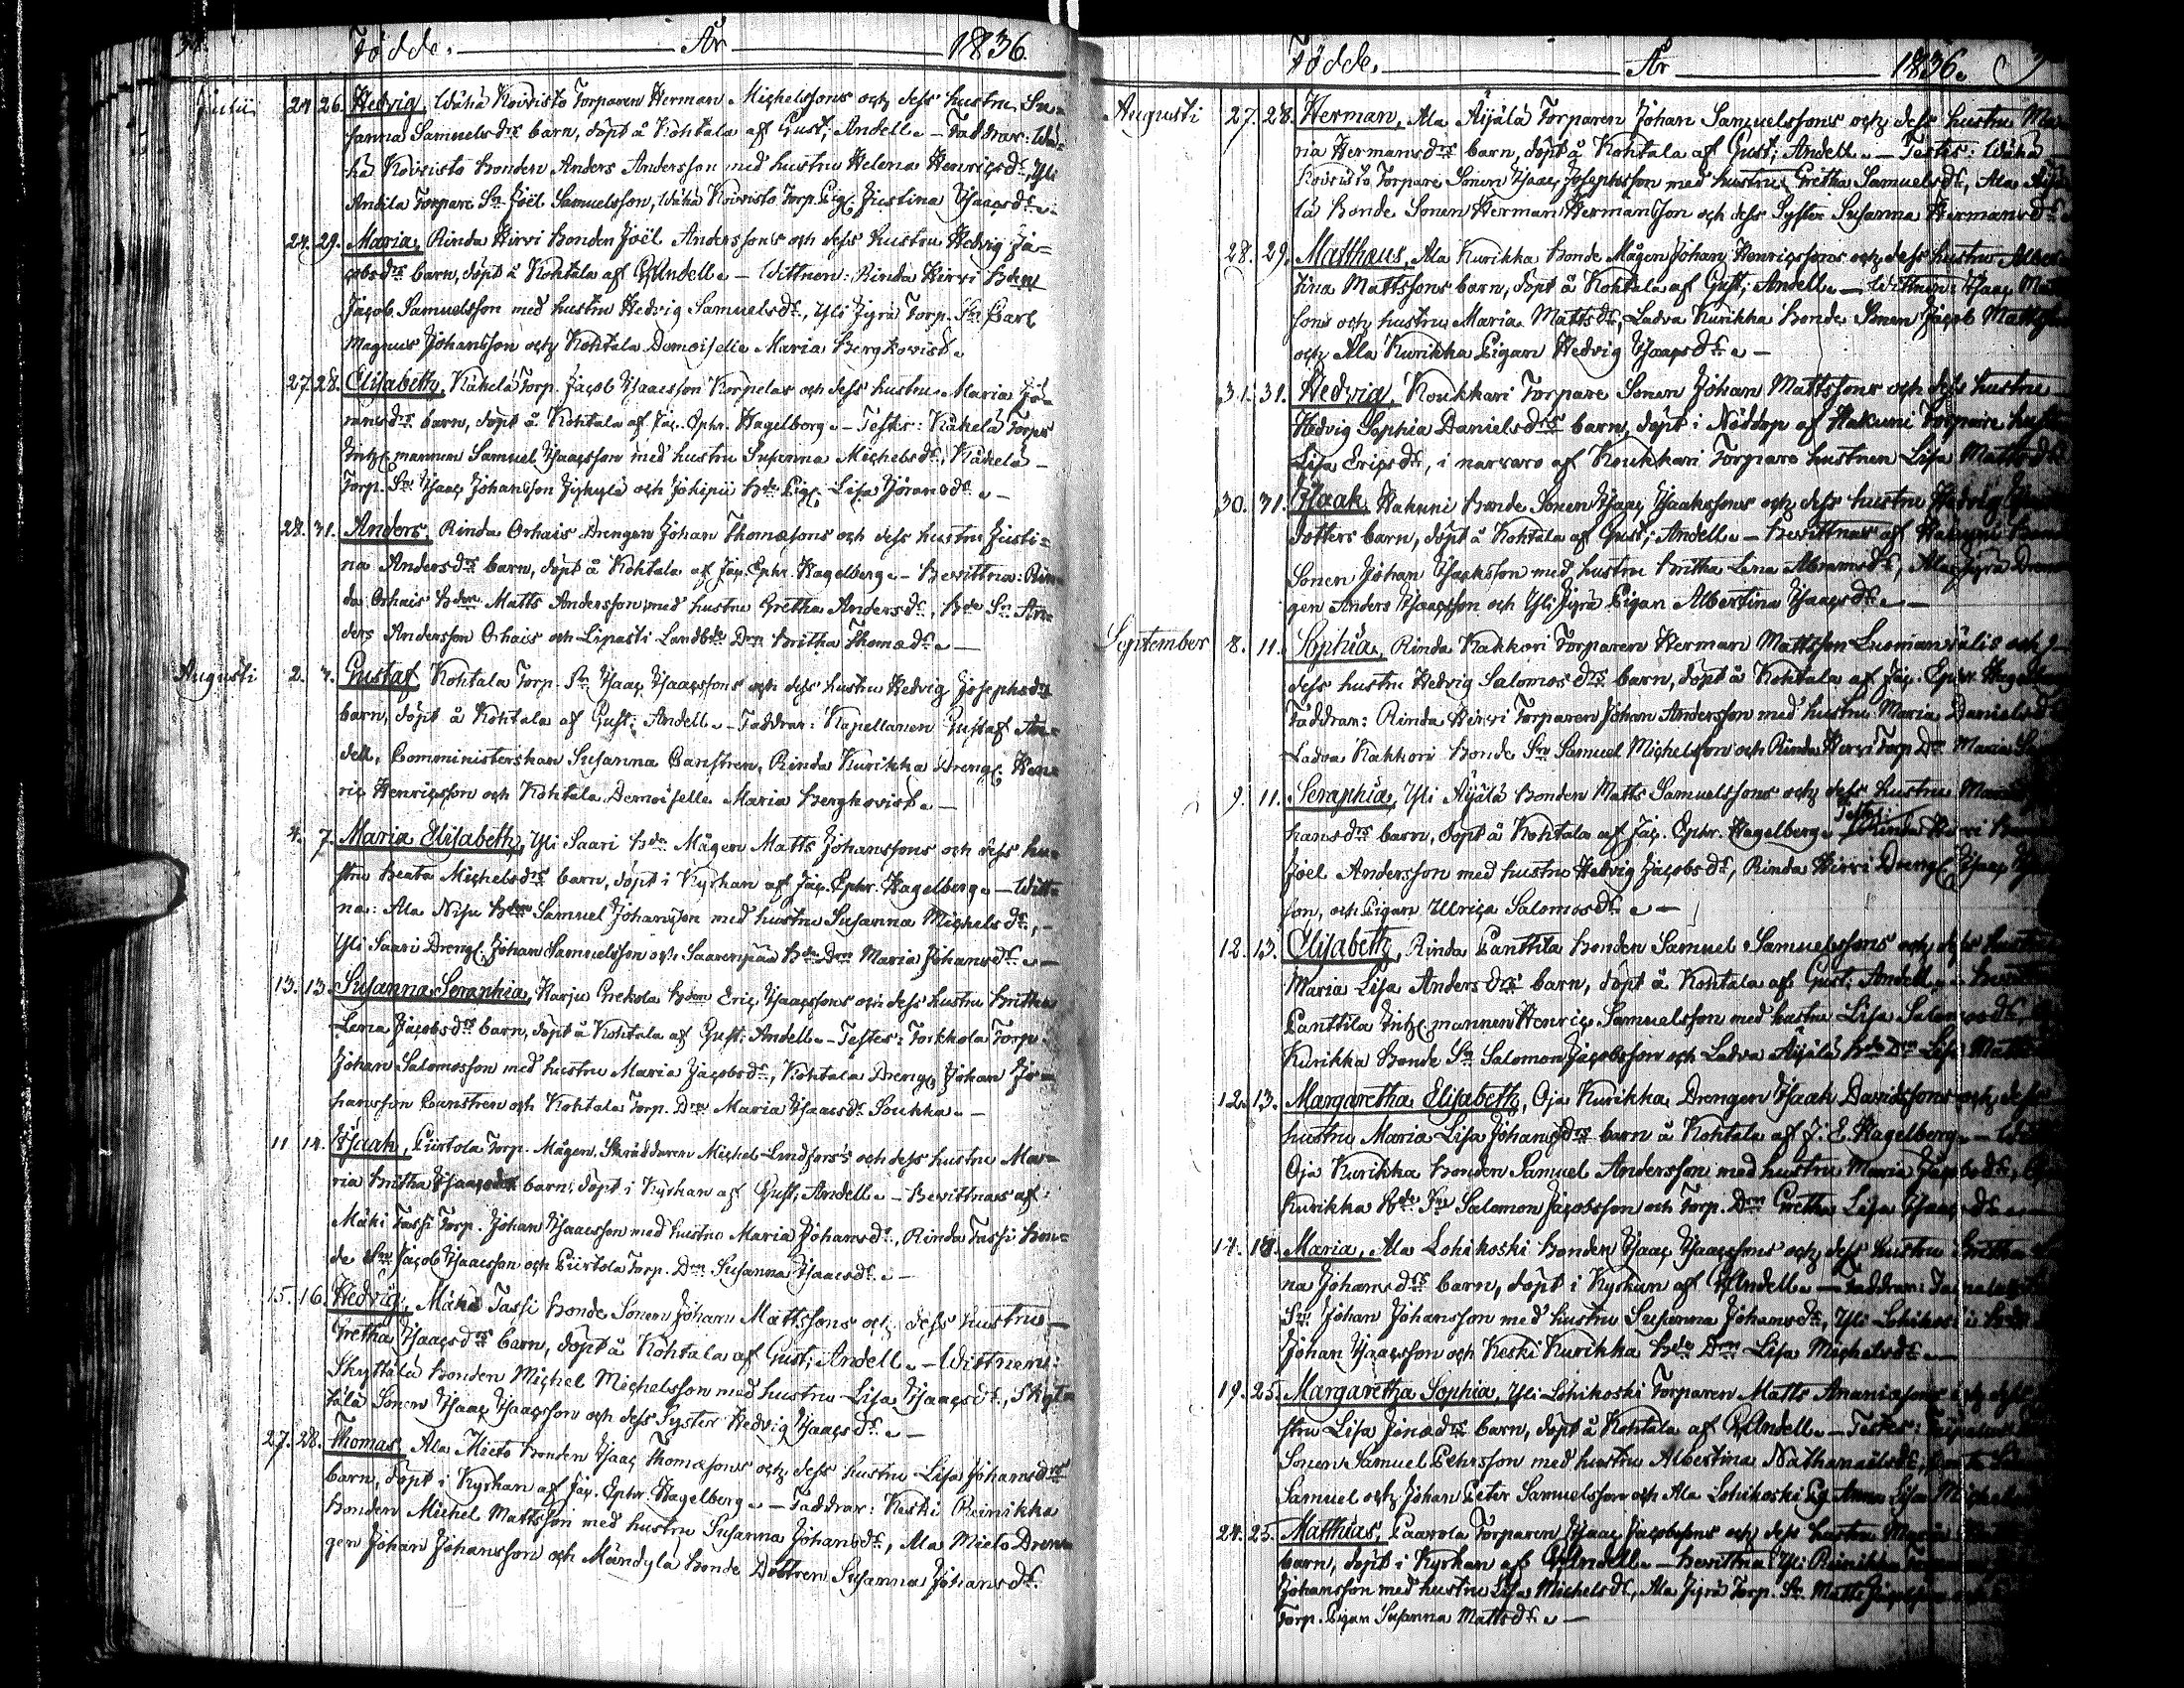 Födde. År 1836.
Julii 24. 26. Hedvig, Wähä Koivisto Torparen Herman Michelssons och dess hustru Su=
sanna Samuelsdrs barn, döpt å Kohtala af Gust: Andell. — Faddrar: Wä=
hä Koivisto Bonden Anders Andersson med hustru Helena Henricsdr, Yli
Andila Torpare Sn Joël Samuelsson, Wähä Koivisto Torp. Pig. Justina Isaacsdr.
24. 29. Maria, Rinda Hirvi Bonden Joël Anderssons och dess hustru Hedvig Ja=
cobsdrs barn, döpt å Kohtala af G Andell. — Wittnen: Rinda Hirvi Bden
Jacob Samuelsson med hustru Hedvig Samuelsdr, Yli Jyrä Torp. Sn Carl
Magnus Johansson och Kohtala Demoiselle Maria Bergkovist.
27. 28. Elisabeth, Käkelä Torp. Jacob Isaacsson Korpelas och dess hustru Maria Jö=
ransdrs barn, döpt å Kohtala af Jac. Ephr. Hagelberg. — Testes: Käkelä Torps
Inhs mannen Samuel Isaacsson med hustru Susanna Michelsdr, Käkelä
Torp. Sn Isaac Johansson Jyhylä och Jokipii Bde Pig. Lisa Jöransdr. —
28. 31. Anders, Rinda Orhais Drengen Johan Thomæsons och dess hustru Justi=
na Andersdrs barn, döpt å Kohtala af Jac. Ephr. Hagelberg. — Bevittna: Rin=
da Orhais Bden Matts Andersson med hustru Gretha Andersdr, Bde Sn An=
ders Andersson Orhais och Lipasti Landbde Drn Britha Thomædr. —
Augusti 2. 7. Gustaf, Kohtala Torp. Sn Isaac Isaacssons och dess hustru Hedvig Josephsdrs
barn, döpt å Kohtala af Gust: Andell. — Faddrar: Kapellanen Gustaf An=
dell, Comministerskan Susanna Canstren, Rinda Kurikka Drengs: Hen=
ric Henricsson och Kohtala Demoiselle Maria Bergkovist. —
4. 7. Maria Elisabeth, Yli Saari Bde Mågen Matts Johanssons och dess hu=
stru Beata Michelsdrs barn, döpt i Kyrkan af Jac. Ephr. Hagelberg. — Witt=
na: Ala Nisu Bden Samuel Johansson med hustru Susanna Michelsdr, —
Yli Saari Dreng. Johan Samuelsson och Saarenpää Bde Drn Maria Johansdr. —
13. 13. Susanna Seraphia, Harju Grekola Bden Eric Isaacssons och dess hustru Britha
Lena Jacobsdrs barn, döpt å Kohtala af Gust: Andell. — Testes: Torkkola Torp.
Johan Salomosson med hustru Maria Jacobsdr, Kohtala Dreng. Johan Jo=
hansson Canstren och Kohtala Torp. Drn Maria Isaacsdr Soukka. —
11. 14. Isaak, Piirtola Torp. Mågen, Skräddaren Michel Lindfors's och dess hustru Ma=
ria Britha Isaacsdrs barn, döpt i Kyrkan af Gust: Andell. — Bevittnas af:
Mäki Tassi Torp. Johan Isaacsson med hustru Maria Johansdr, Rinda Tassi Bon=
de Sn Jacob Isaacsson och Piirtola Torp. Drn Susanna Isaacsdr. —
15. 16. Hedvig, Mäki Tassi Bonde Sonen Johan Mattssons och dess hustru
Gretha Isaacsdrs barn, döpt å Kohtala af Gust: Andell. — Wittnen:
Skyttälä Bonden Michel Michelsson med hustru Lisa Isaacsdr, Skyt=
tälä Sonen Isaac Isaacsson och dess Syster Hedvig Isaacsdr. —
27. 28. Thomas, Ala Mieto Bonden Isaac Thomæsons och dess hustru Lisa Johansdrs
barn, döpt i Kyrkan af Jac. Ephr. Hagelberg. — Faddrar: Keski Reinikka
Bonden Michel Mattsson med hustru Susanna Johansdr, Ala Mieto Dren=
gen Johan Johansson och Mändylä Bonde Dottren Susanna Johansdr.
Födde. År 1836.
Augusti 27. 28. Herman, Ala Äijälä Torparen Johan Samuelssons och dess hustru Ma
ria Hermansdrs barn, döpt å Kohtala af Gust: Andell. — Testes: Wähä
Koivisto Torpare Sonen Isaac Josephsson med hustru Gretha Samuelsdr, Ala Äijä
lä Bonde Sonen Herman Hermansson och dess Syster Susanna Hermansdr.
28. 29. Matthæus, Ala Kurikka Bonde Mågen Johan Henricssons och dess hustru Alber
tina Mattssons barn, döpt å Kohtala af Gust: Andell. — Wittnen: Isaac
sons och hustru Maria Mattsdr, Ladva Kurikka Bonde Sonen Jacob Matts
och Ala Kurikka Pigan Hedvig Isaacsdr. —
31. 31. Hedvig, Koukkari Torpare Sonen Johan Mattssons och dess hustru
Hedvig Sophia Danielsdrs barn, döpt i Nöddop af Hakuni Torpare hustru
Lisa Ericsdr, i närvaro af Koukkari Torpare hustrun Lisa Mattsdr.
30. 31. Isaak, Hakuni Bonde Sonen Isaac Isaakssons och dess hustru Hedvig
dotters barn, döpt å Kohtala af Gust: Andell. — Bevittnas af Hakuni Bonde
Sonen Johan Isaksson med hustru Britha Lena Abramsdr, Ala Jyrä Dren
gen Anders Isaacsson och Yli Jyrä Pigan Albertina Isaacsdr. —
September 8. 11. Sophia, Rinda Kakkori Torparen Herman Mattsson Luomanvälis och
dess hustru Hedvig Salomosdrs barn, döpt å Kohtala af Jac. Ephr. Hagelb
Faddrar: Rinda Hirvi Torparen Johan Andersson med hustru Maria Danielsdr
Ladva Kakkori Bonde Sn Samuel Michelsson och Rinda Hirvi Torp Drn Maria
9. 11. Seraphia, Yli Äijälä Bonden Matts Samuelssons och dess hustru Maria
hansdrs barn, döpt å Kohtala af Jac. Ephr. Hagelberg. Testes: Rinda Hirvi
Joel Andersson med hustru Hedvig Jacobsdr, Rinda Hirvi Dreng. Isaac
son, och Pigan Ulrica Salomosdr. —
12. 13. Elisabeth, Rinda Panttila Bonden Samuel Samuelssons och dess hustru
Maria Lisa Andersdrs barn, döpt å Kohtala af Gust: Andell.
Panttila Inhs mannen Henric Samuelsson med hustru Lisa Salomosdr,
Kurikka Bonde Sn Salomon Jacobsson och Ladva Äijälä Bde Drn Lisa
12. 13. Margaretha Elisabeth, Oja Kurikka Drengen Isaak Davidssons och dess
hustru Maria Lisa Johansdrs barn å Kohtala af J. E. Hagelberg. —
Oja Kurikka Bonden Samuel Andersson med hustru Maria Jacobsdr,
Kurikka Bde Sn Salomon Jacobsson och Torp. Drn Gretha Lisa Isaacsdr.
17. 18. Maria, Ala Lohikoski Bonden Isaac Isaacssons och dess hustru Britha
na Johansdrs barn, döpt i Kyrkan af G Andell. — Faddrar:
Sn Johan Johansson med hustru Susanna Johansdr, Yli Lohikoski
Johan Isaacsson och Keski Kurikka Bde Drn Lisa Michelsdr. —
19. 25. Margaretha Sophia, Yli Lohikoski Torparen Matts Ananiæsons och dess
stru Lisa Jonædrs barn, döpt å Kohtala af G Andell. — Testes:
Sonen Samuel Pehrsson med hustru Albertina Nathanaelsdr,
Samuel och Johan Peter Samuelsson och Ala Lohikoski Pig. Anna Lisa
24. 25. Matthias, Paavola Torparen Isaac Jacobssons och dess hustru Maria
barn, döpt i Kyrkan af G Andell. — Bevittna: Yli Reinikka
Johansson med hustru Lisa Michelsdr, Ala Jyrä Torp. Sn Matts
Torp. Pigan Susanna Mattsdr. —